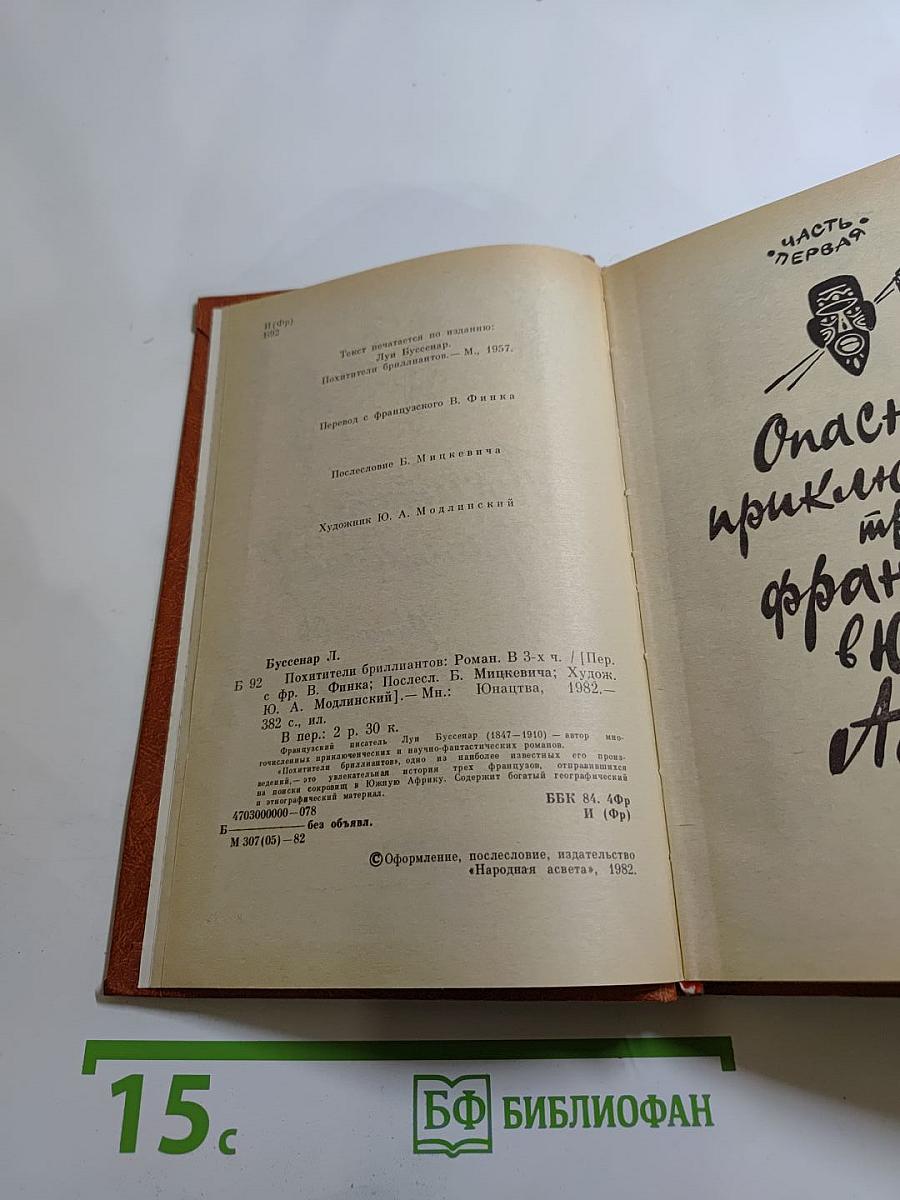 И(Фр)
Б92
Текст печатается по изданию:
Луи Буссенар.
Похитители бриллиантов.— М., 1957.
Перевод с французского В. Финка
Послесловие Б. Мицкевича
Художник Ю. А. Модлинский
Буссенар Л.
Б 92 Похитители бриллиантов: Роман. В 3-х ч. / [Пер.
с фр. В. Финка; Послесл. Б. Мицкевича; Худож.
Ю. А. Модлинский].— Мн.: Юнацтва, 1982.—
382 с., ил.
В пер.: 2 р. 30 к.
Французский писатель Луи Буссенар (1847—1910) — автор мно-
гочисленных приключенческих и научно-фантастических романов.
«Похитители бриллиантов», одно из наиболее известных его произ-
ведений,— это увлекательная история трех французов, отправившихся
на поиски сокровищ в Южную Африку. Содержит богатый географический
и этнографический материал.
4703000000—078
Б———без объявл.
М 307(05)—82
ББК 84. 4Фр
И (Фр)
©Оформление, послесловие, издательство
«Народная асвета», 1982.
•ЧАСТЬ•
•ПЕРВАЯ•
Опасн
приклю
тр
фран
в Ю
А
15 с
БФ БИБЛИОФАН